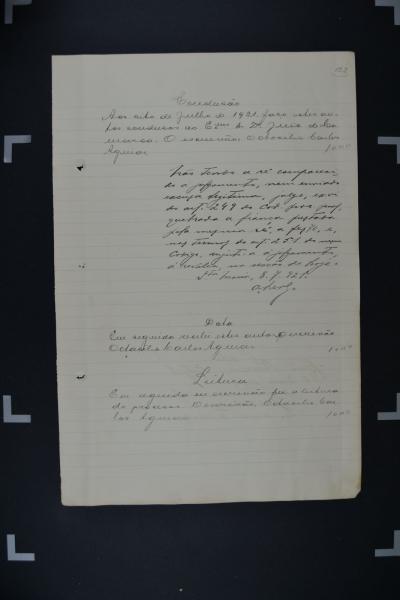 Conclusão
Aos oito de Julho de 1921 faço estes au-
tos conclusos ao Exmo Sr. Dr. Juiz da Co-
marca. O escrivão, Octacilio Carlos
Aguiar
1000
Não tendo a ré comparecido
a julgamento, nem enviado
escusa legitima, julgo,
do art. 249 do Cod. proc. pen.,
quebrada a fiança prestada
pela mesma ré, a fls. e,
nos termos do art. 251 do mesmo
Codigo, sujeita a julgamento,
á revelia, na sessão de hoje.
Sta Maria, 8.7.921.
Data
Em seguida recebi estes autos. O escrivão
Octacilio Carlos Aguiar
1000
Leitura
Em seguida eu escrivão fiz a leitura
do processo. O escrivão, Octacilio Car-
los Aguiar
1000